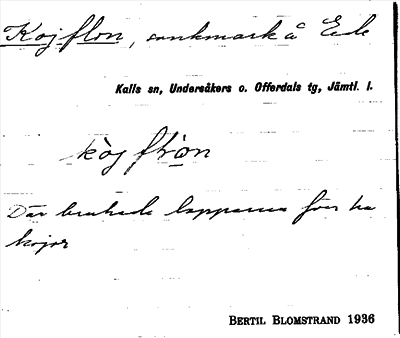 Kojflon, sankmark å Ede
Kalls sn, Undersåkers o. Offerdals tg, Jämtl. l.
kòj flòn
Där brukade lapparna förr ha
kojor
BERTIL BLOMSTRAND 1936